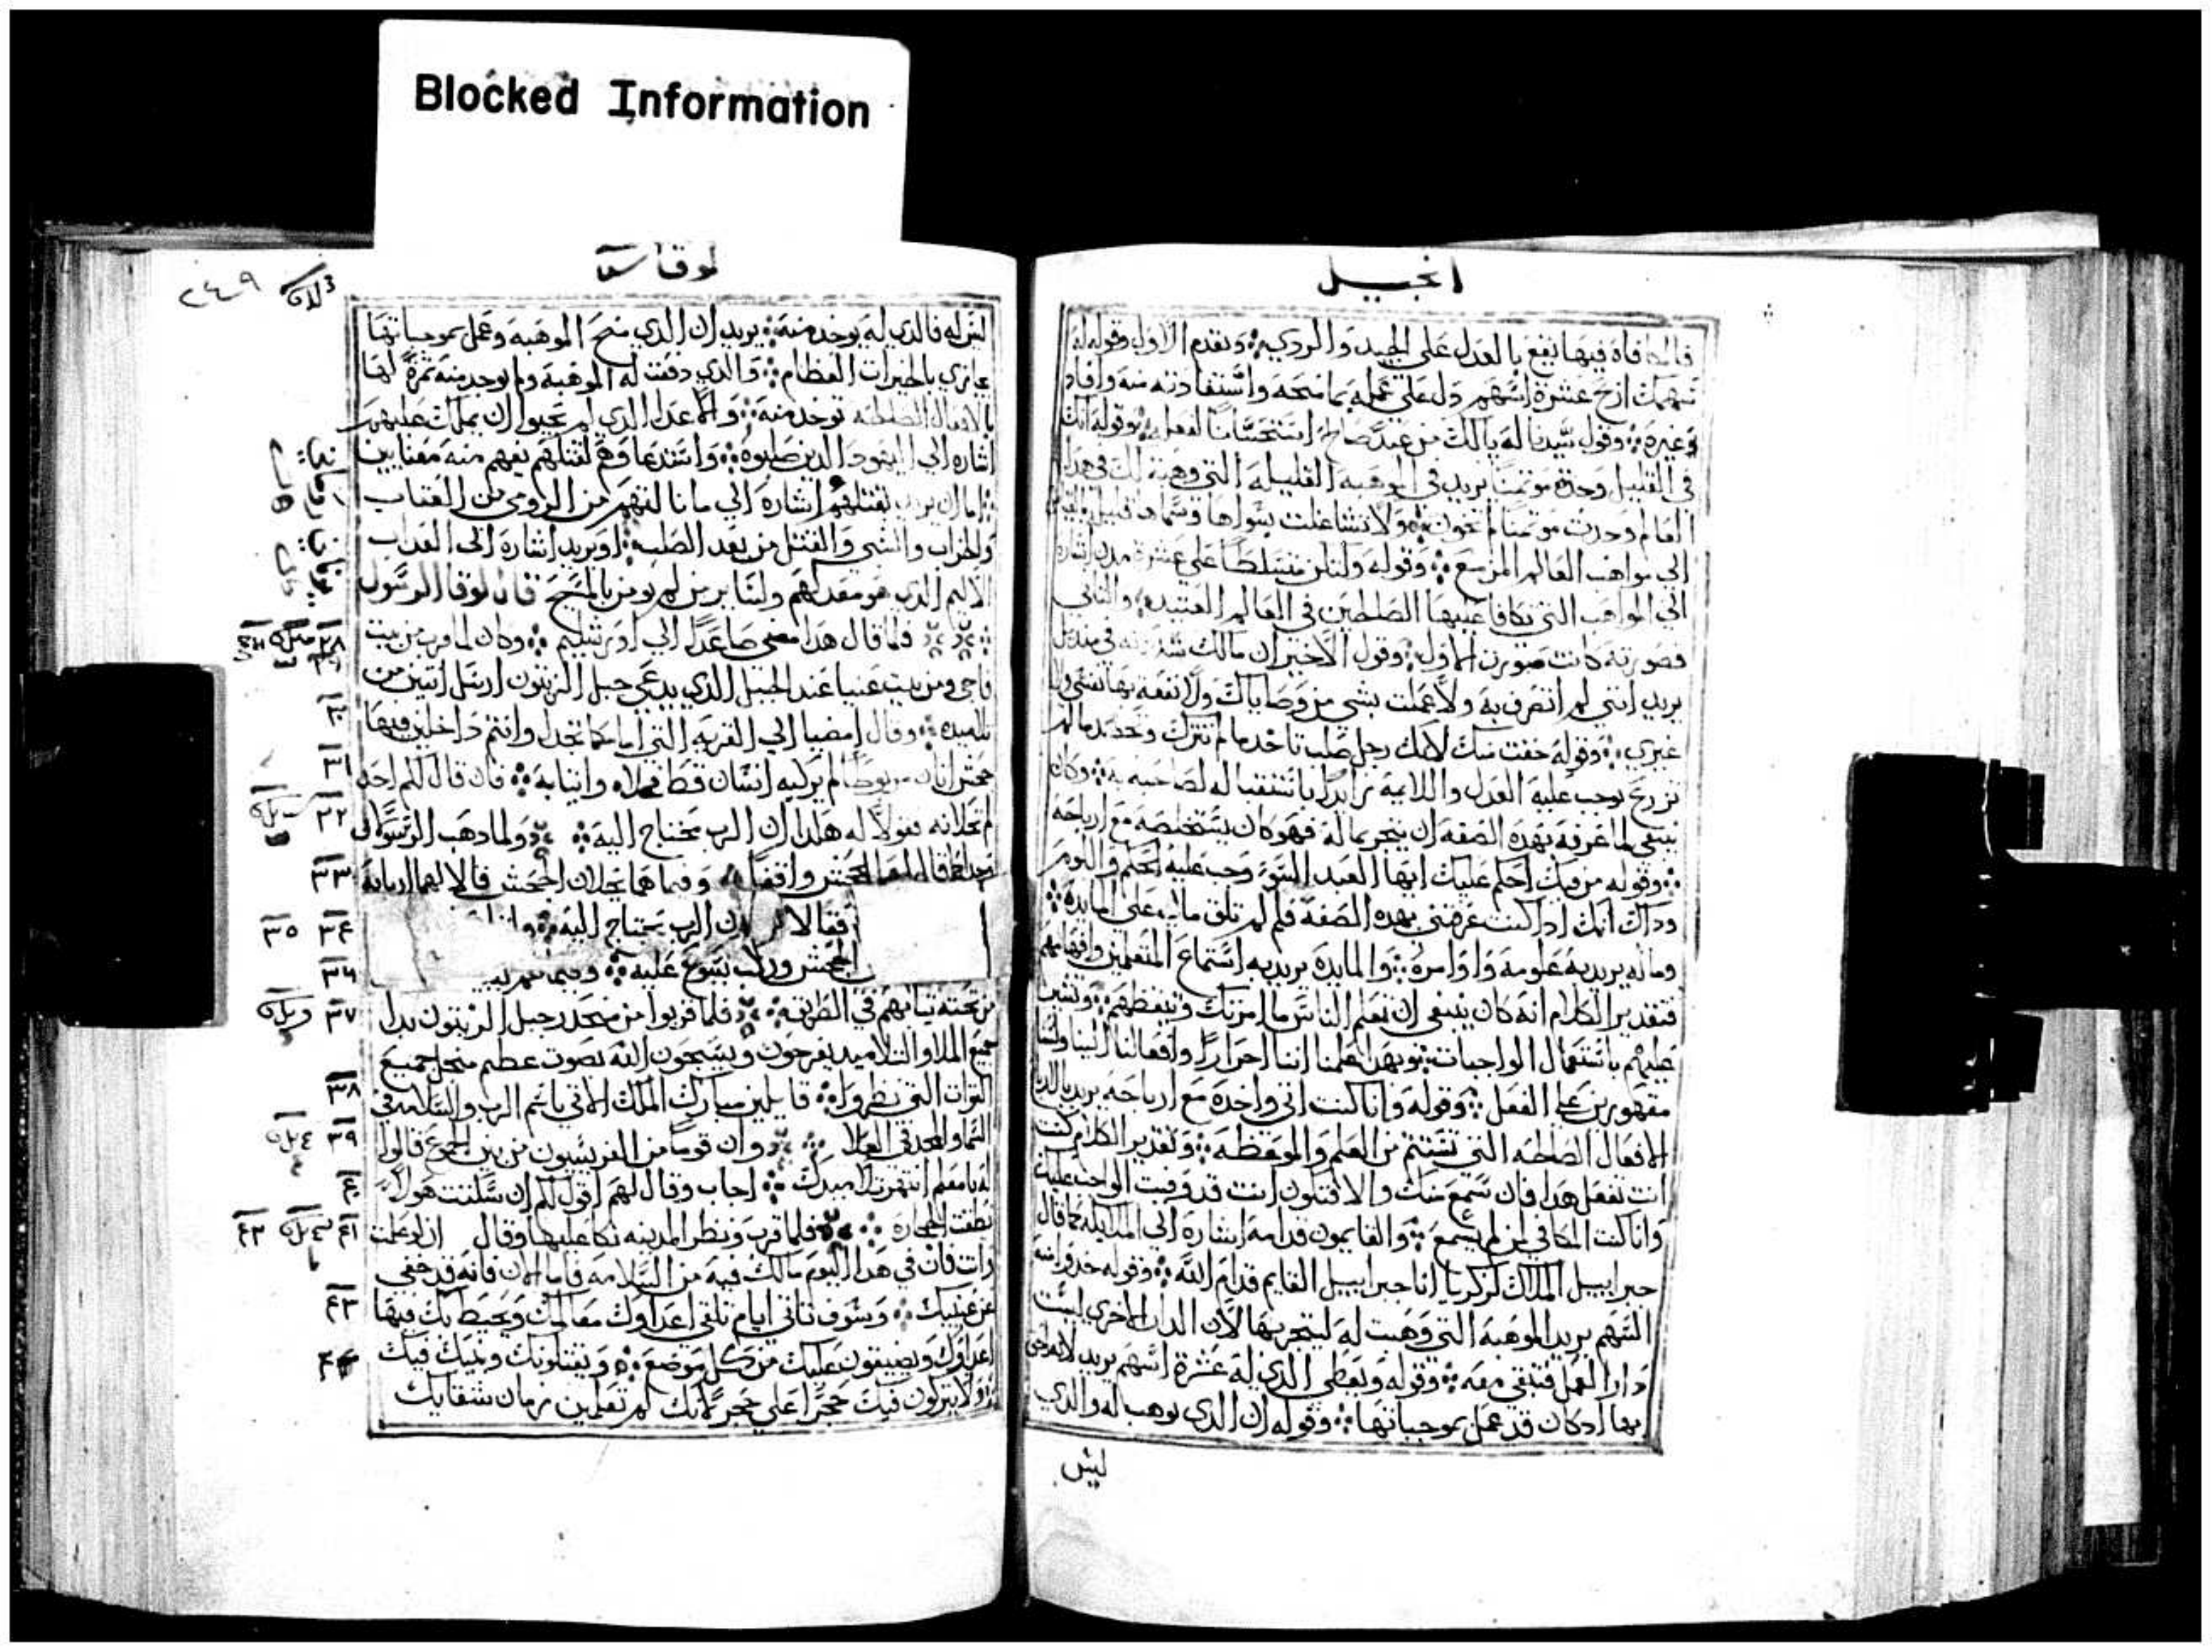 Blocked Information
انجيل
فالمكافاة فيها تقع بالعدل على الجيد والردي وتقدم الاول وقوله له
منهمك اربح عشرة اسهم دل على عمله بما منحه واستفادته منه وافاد
غيره وقول سيدنا له يا لك من عبد صالح استحسانا لفعله وقوله انك
في القليل وجدت موتمنا يريد في الموهبه القليله التي وهبة لك في هدا
العالم وجدت موتمنا لم تخون ولا تشاغلت بسواها وسماها قليل
الي مواهب العالم المزمع وقوله ولتكن متسلطا علي عشرة مدن اشارة
الي المواهب التي تكافا عليها الصالحين في العالم العتيده والثاني
فصورته كانت صورت الاول وقول الاخير ان مالك في منديل
يريد انني لم اتصرف به ولا عملت بشي من وصاياك ولا نفعة بها نفسي ولا
غيري وقوله خفت منك لانك رجل صلب تاخد ما لم تترك وتحصد ما لم
تزرع توجب عليه العدل واللايمه وكان
ينبغي لما عرفه بهده الصفه ان يتجر بماله فهو كان يستخلصه مع ارباحه
وقوله من فيك احكم عليك ايها العبد السوء وجب عليه الحكم واللوم
وداك انك ادا كنت عرفتني بهده الصفه فلم لم تلق مالي على المايدة
وماله يريد به علومه واوامره والمايدة يريد به استماع المتعلمين وافهامهم
فتقدير الكلام انه كان ينبغي ان تعلم الناس ما امرتك وتعظهم
باستعمال الواجبات وبهدا علمنا اننا احرارا وافعالنا الينا ولسنا
مقهورين على الفعل وقوله وانا كنت اتي واخدة مع ارباحه يريد بالربا
الافعال الصالحه التي تستتم من العلم والموعظه وتقدير الكلام كنت
انت تفعل هدا فان سمع منك والا فتكون انت قد وفيت الواجب عليك
وانا كنت المكافي لمن لم يسمع والقايمون قدامه اشارة الي الملايكه كما قال
جبراييل الملاك لزكريا انا جبراييل القايم قدام الله وقوله خدوا منه
السهم يريد الموهبه التي وهبت له ليتجر بها لان الدار الاخري ليست
دار العمل فتبقي معه وقوله ويعطي الدي له عشرة اسهم يريد
بها اد كان قد عمل بموجباتها وقوله ان الدي يوهب له والدي
ليس
لوقا
٢٤٩
ليس له فالدي له يوخد منه يريد ان الدي منح الموهبه وعمل بموجباتها
يجازي بالخيرات العظام والدي دفعت له الموهبه ولم توجد منه ثمرة لها
بالافعال الصالحه توخد منه والاعدا الدي لم يحبوا ان يملك عليهم
اشاره الي اليهود الدين صلبوه واستدعاوهم لقتلهم يفهم منه معنايين
اما ان يريد بقتلهم اشارة الي ما نالهم من الرومي من العقاب
والخراب والسبي والقتل من بعد الصلب او يريد اشارة الى العداب
الاليم الدي هو معد لهم ولساير من لم يومن بالمسيح قال لوقا الرسول
فلما قال هدا مضي صاعدا الي اورشليم وكان لما قرب من بيت
فاجي ومن بيت عنيا عند الجبل الدي يدعي جبل الزيتون ارسل اتنين من
تلاميده وقال امضيا الي القريه التي امامكما تجدا وانتم داخلين فيها
جحش اتان مربوطا لم يركبه انسان قط فحلاه واتيا به فان قال لكم احد
لم تحلانه فقولا له هكدا ان الرب يحتاج اليه ولما دهب الرسولان
وجدا كما قال لهما الجحش واقفا وفيما هما يحلان الجحش قالا لهما اربابه
فقالا ان الرب يحتاج اليه
الجحش وركب يسوع عليه وفيما هم
من تحته ثيابهم في الطريق فلما قربوا من منحدر جبل الزيتون بدا
جميع الملاو التلاميد يفرحون ويسبحون الله بصوت عظيم من اجل جميع
القوات التي نظروا قايلين مبارك الملك الاتي باسم الرب والسلامه في
السما والمجد في العلا وان قوما من الفريسيون من بين الجمع قالوا
له يا معلم انتهر تلاميدك اجاب وقال لهم اقول لكم ان سكتت هولاء
نطقت الحجارة فلما قرب ونظر المدينه بكا عليها وقال ان لو علمت
انت فان في هدا اليوم مالك فيه من السلامه فاما الان فانه قد خفي
عن عينيك وسوف تاتي ايام تلقي اعداوك معالمك ويحيط بك فيها
اعداوك ويضيقون عليك من كل موضع ويقتلونك وبنيك فيك
ولا يتركون فيك حجرا على حجر لانك لم تعلمين زمان شقايك
٢٨
٣٠
٣١
٣٢
٣٣
٣٤ ٣٥
٣٦
٣٧
٣٨
٣٩
٤٠
٤١ ٤٢
٤٣
٤٤